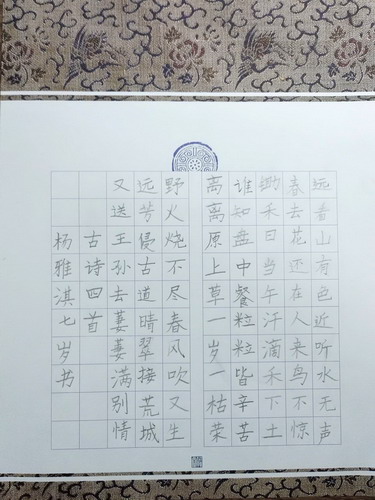 远看山有色近听水无声
春去花还在人来鸟不惊
锄禾日当午汗滴禾下土
谁知盘中餐粒粒皆辛苦
离离原上草一岁一枯荣
野火烧不尽春风吹又生
远芳侵古道晴翠接荒城
又送王孙去萋萋满别情
古诗四首
杨雅淇七岁书